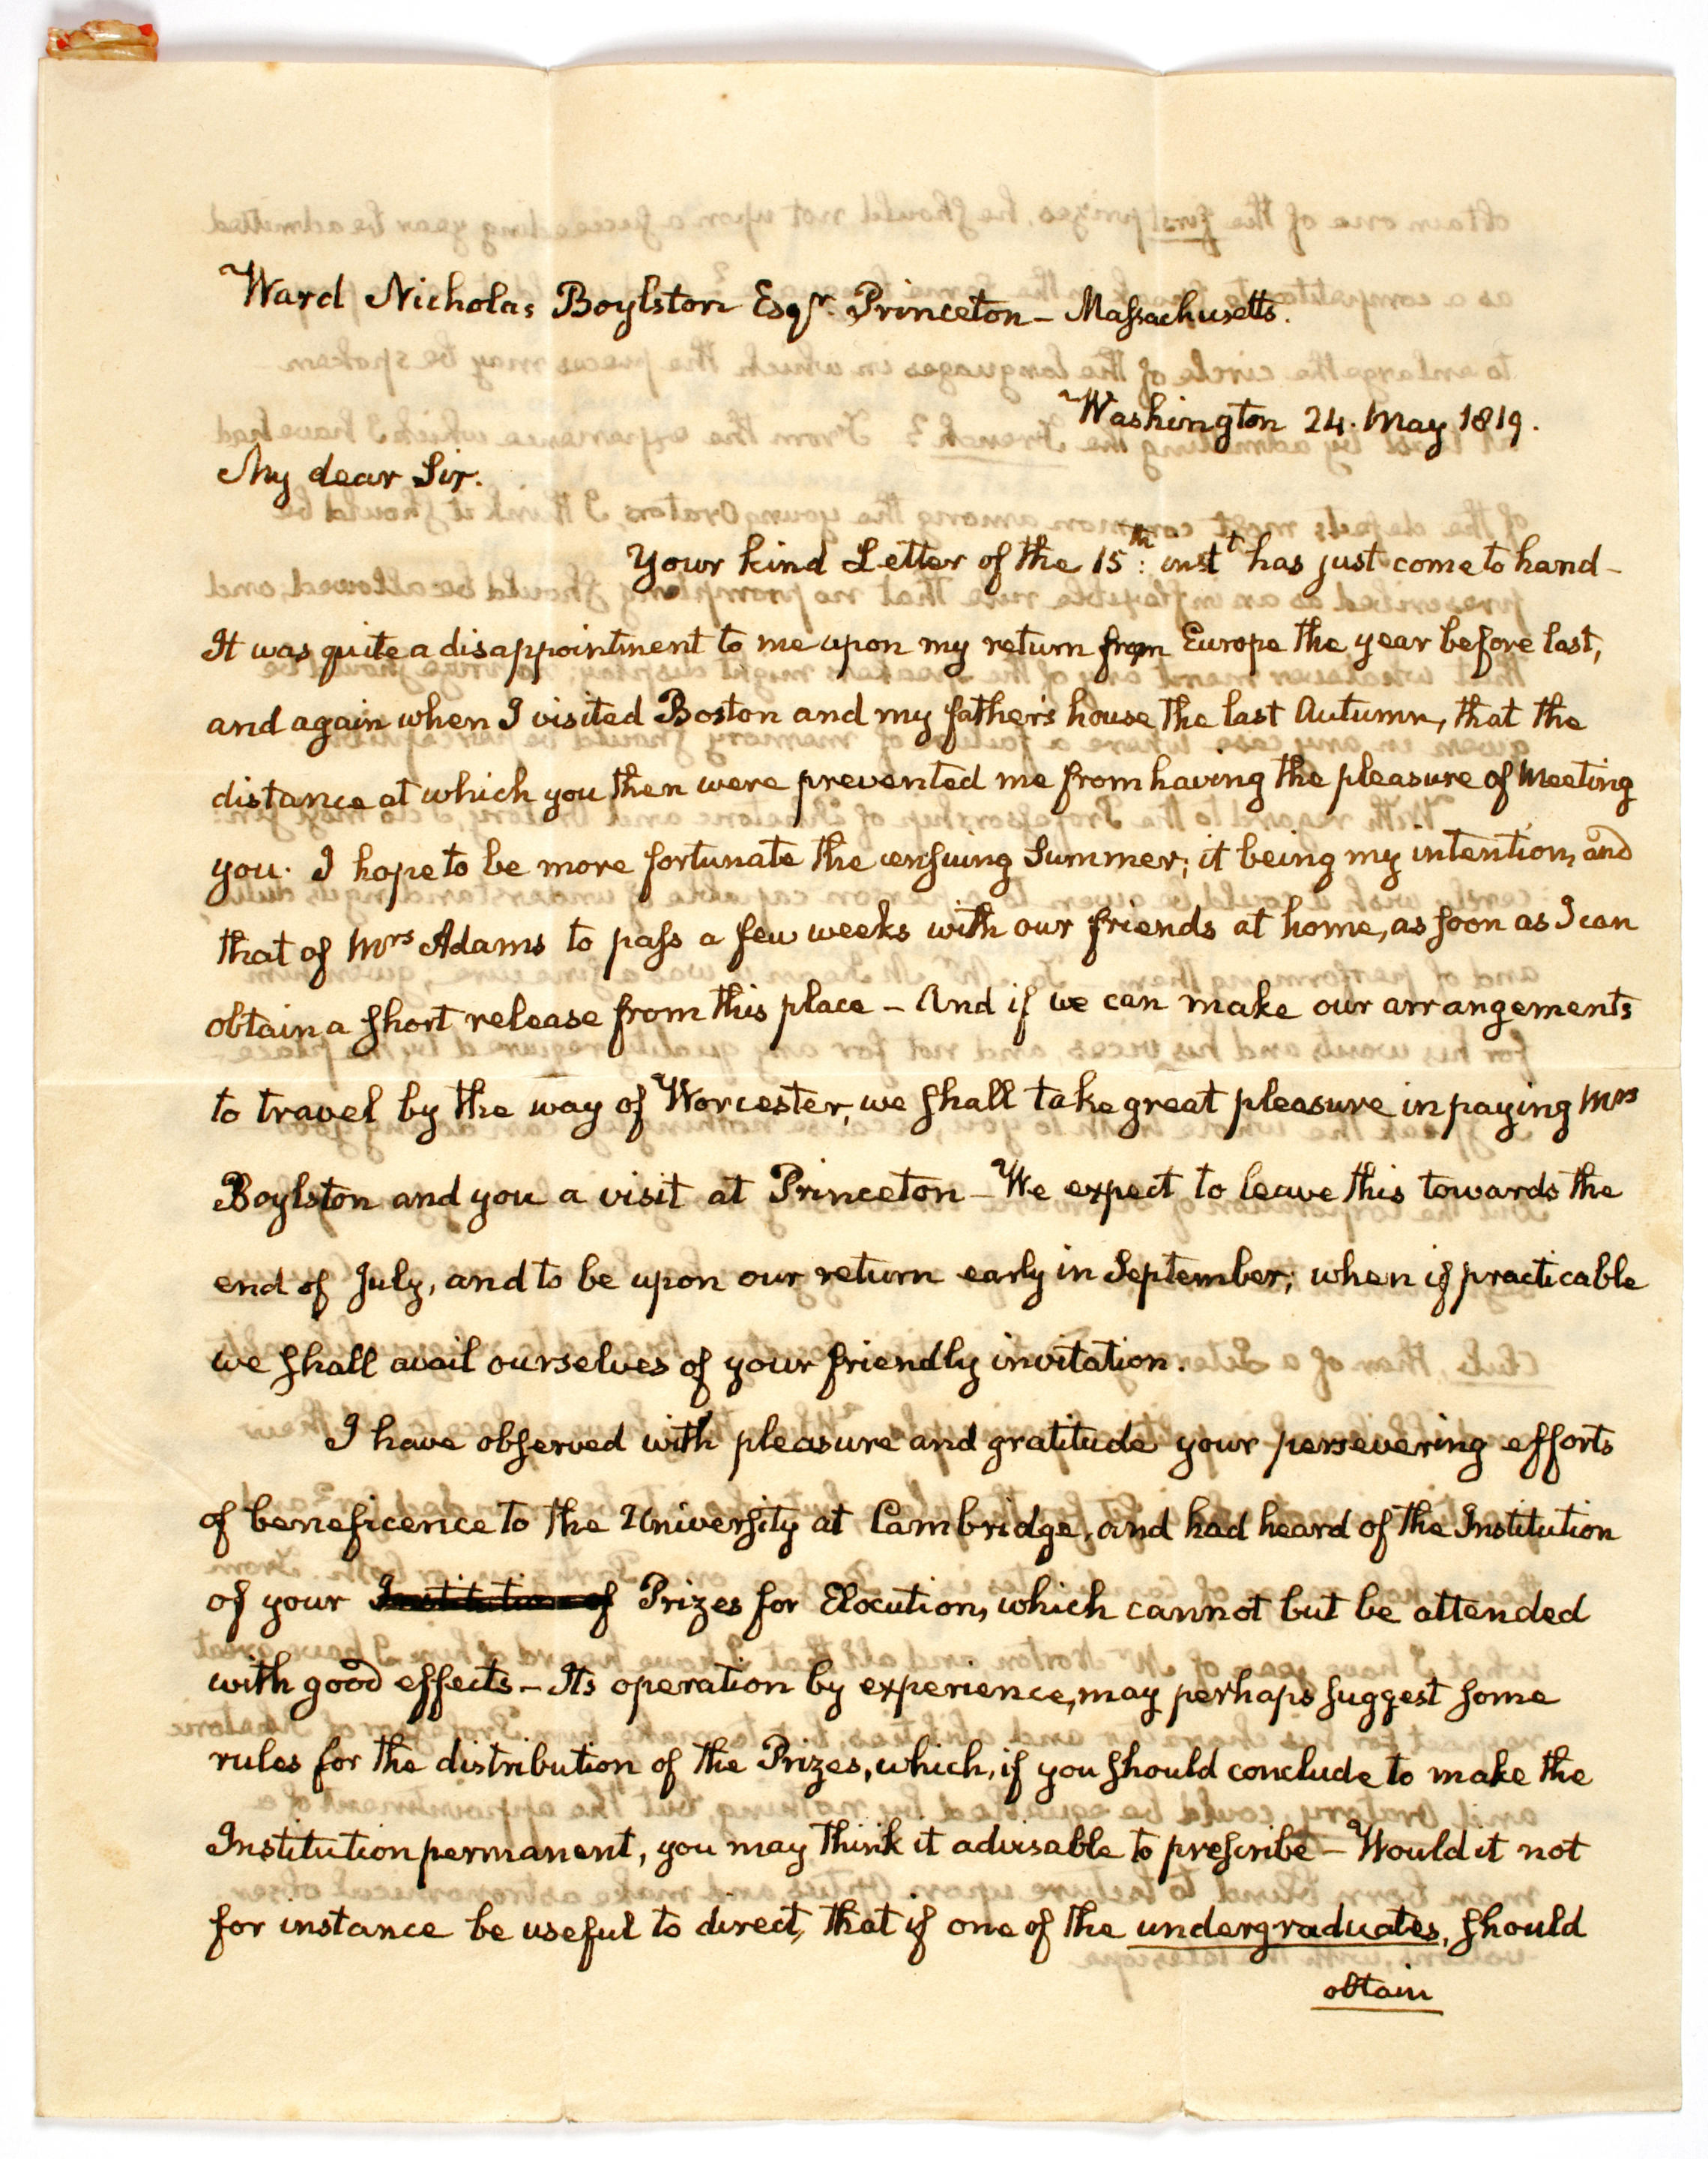 Ward Nicholas Boylston Esqr. Princeton - Massachusetts.
Washington 24. May 1819.
My dear Sir.
Your kind Letter of the 15th: instt has just come to hand -
It was quite a disappointment to me upon my return from Europe the year before last,
and again when I visited Boston and my father's house the last Autumn, that the
distance at which you then were prevented me from having the pleasure of Meeting
you. I hope to be more fortunate the ensuing Summer; it being my intention, and
that of Mrs Adams to pass a few weeks with our friends at home, as soon as I can
obtain a short release from this place - And if we can make our arrangements
to travel by the way of Worcester, we shall take great pleasure in paying Mrs
Boylston and you a visit at Princeton - We expect to leave this towards the
end of July, and to be upon our return early in September; when if practicable
we shall avail ourselves of your friendly invitation.
I have observed with pleasure and gratitude your persevering efforts
of beneficence to the University at Cambridge, and had heard of the Institution
of your Institution of Prizes for Elocution, which cannot but be attended
with good effects - Its operation by experience, may perhaps suggest some
rules for the distribution of the Prizes, which, if you should conclude to make the
Institution permanent, you may think it advisable to prescribe - Would it not
for instance be useful to direct, that if one of the undergraduates, should
obtain